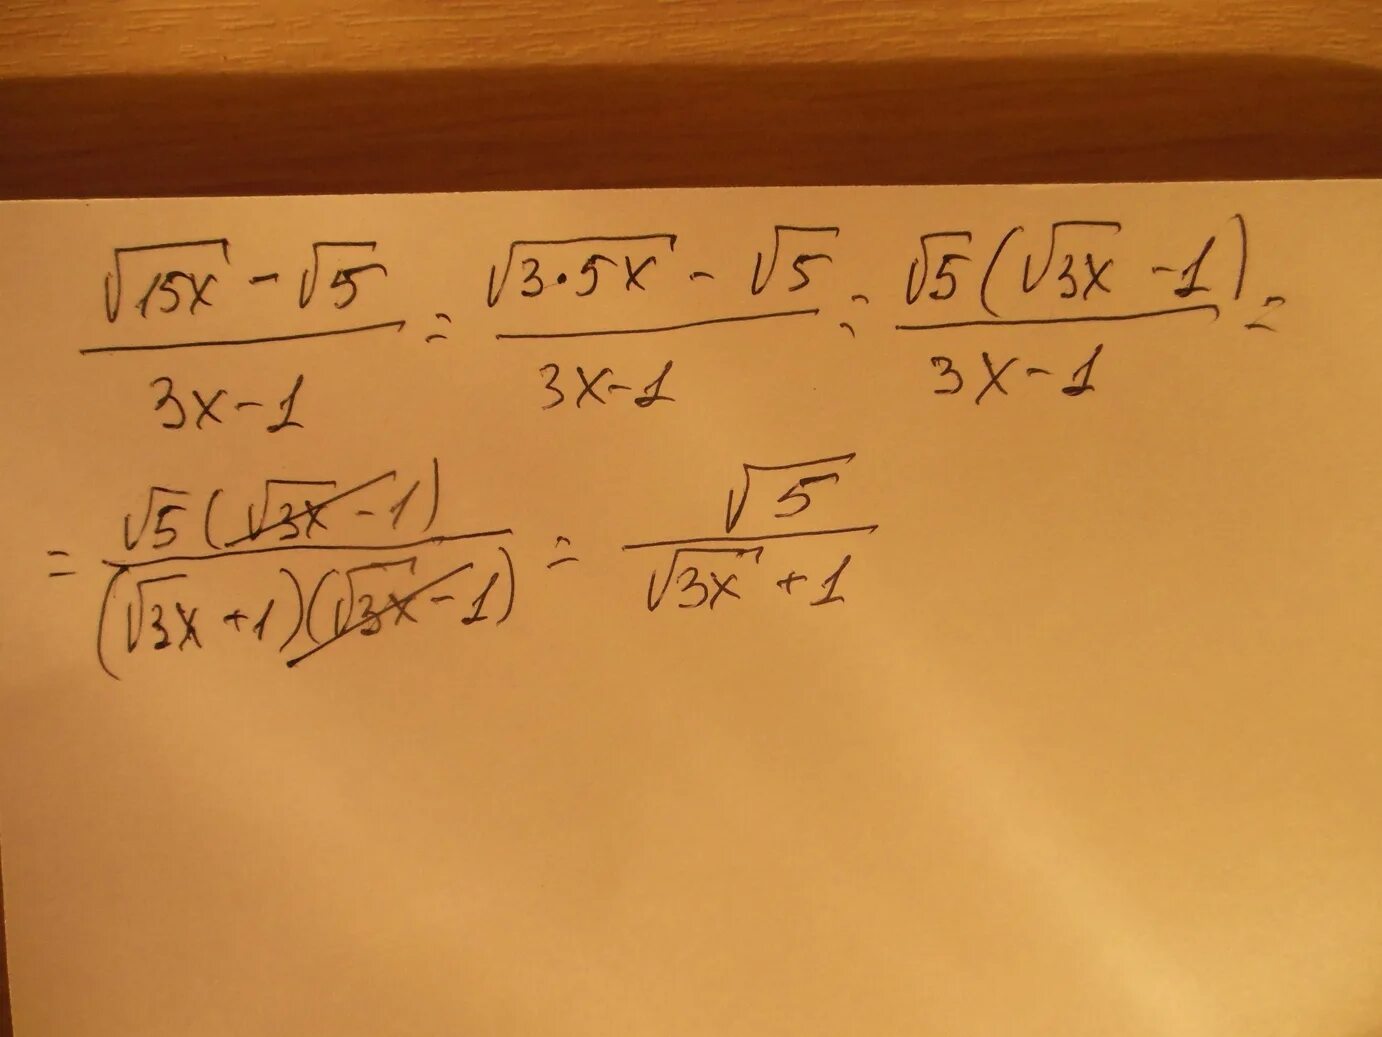 (√15x - √5)/(3x-1) = (√3·5x - √5)/(3x-1) = (√5(√3x - 1))/(3x-1) =
= (√5(√3x - 1))/((√3x + 1)(√3x - 1)) = √5/(√3x + 1)